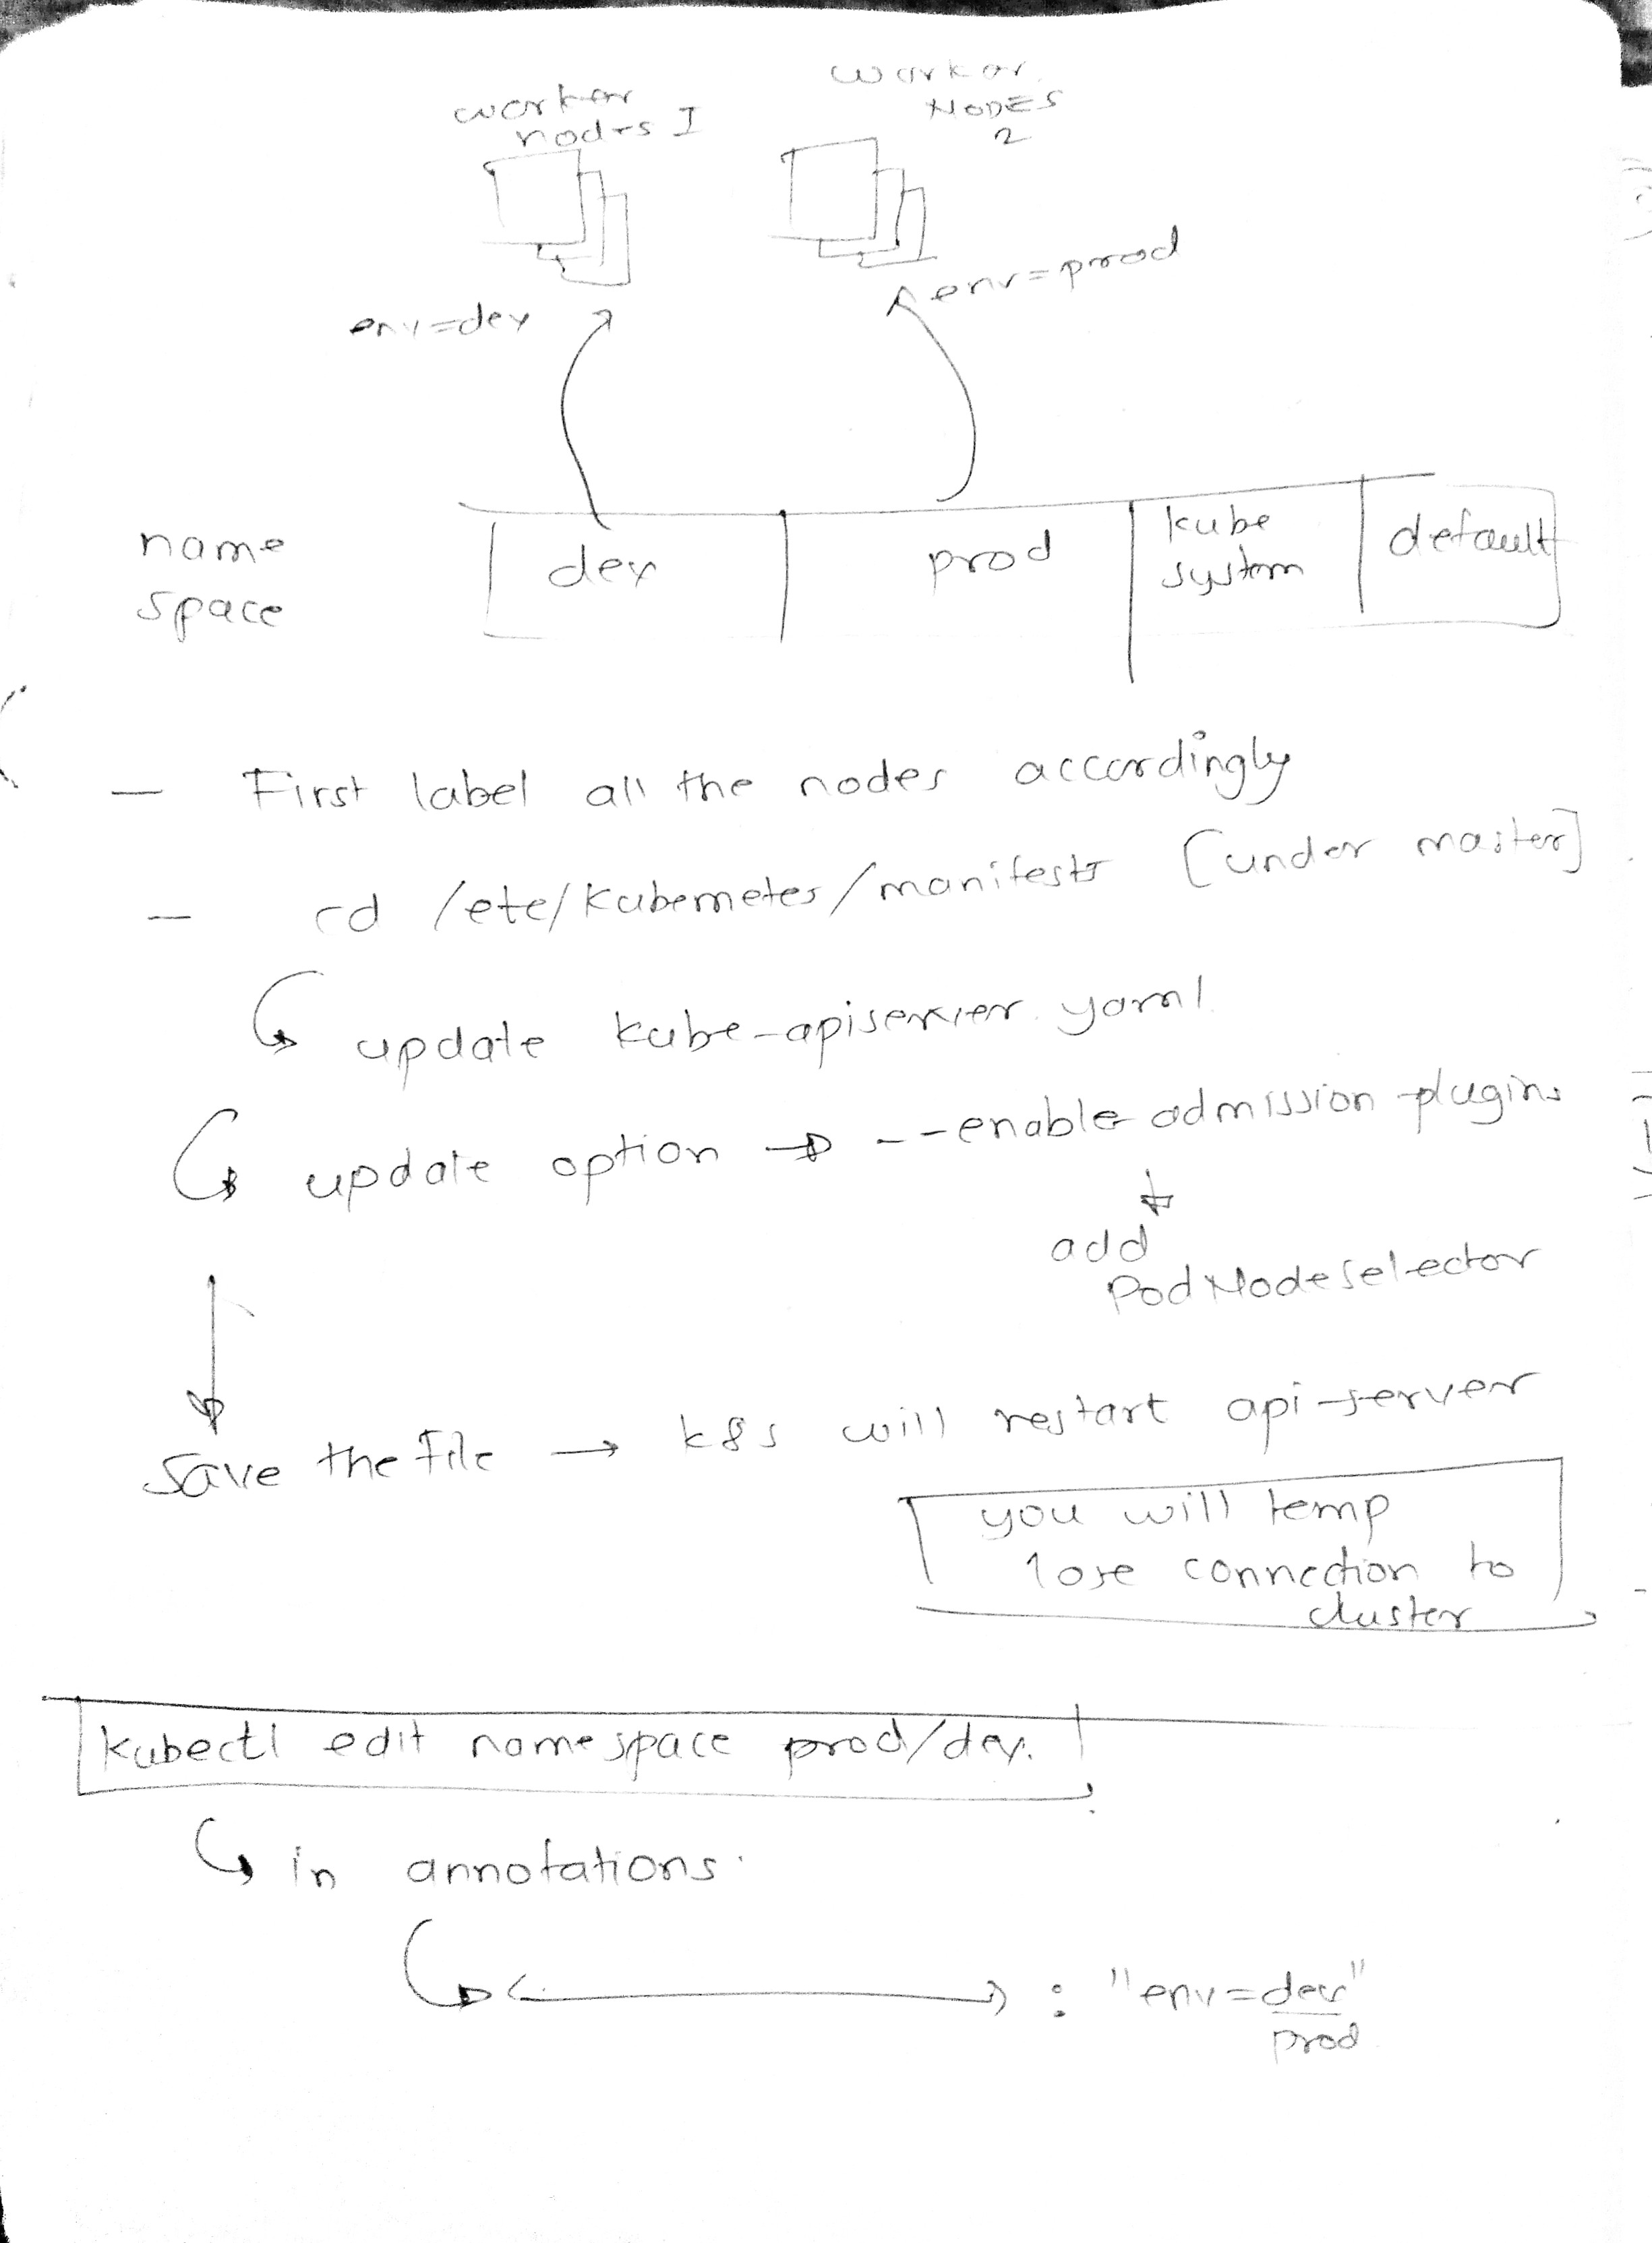 worker
nodes I
worker
NODES
2
env=dev
env=prod
name
space
dev
prod
kube
system
default
- First label all the nodes accordingly
- cd /etc/kubernetes/manifests [under master]
update kube-apiserver.yaml
update option → --enable-admission-plugins
add
PodNodeSelector
save the file → k8s will restart api-server
you will temp
lose connection to
cluster
kubectl edit namespace prod/dev.
in annotations
: "env=dev"
prod